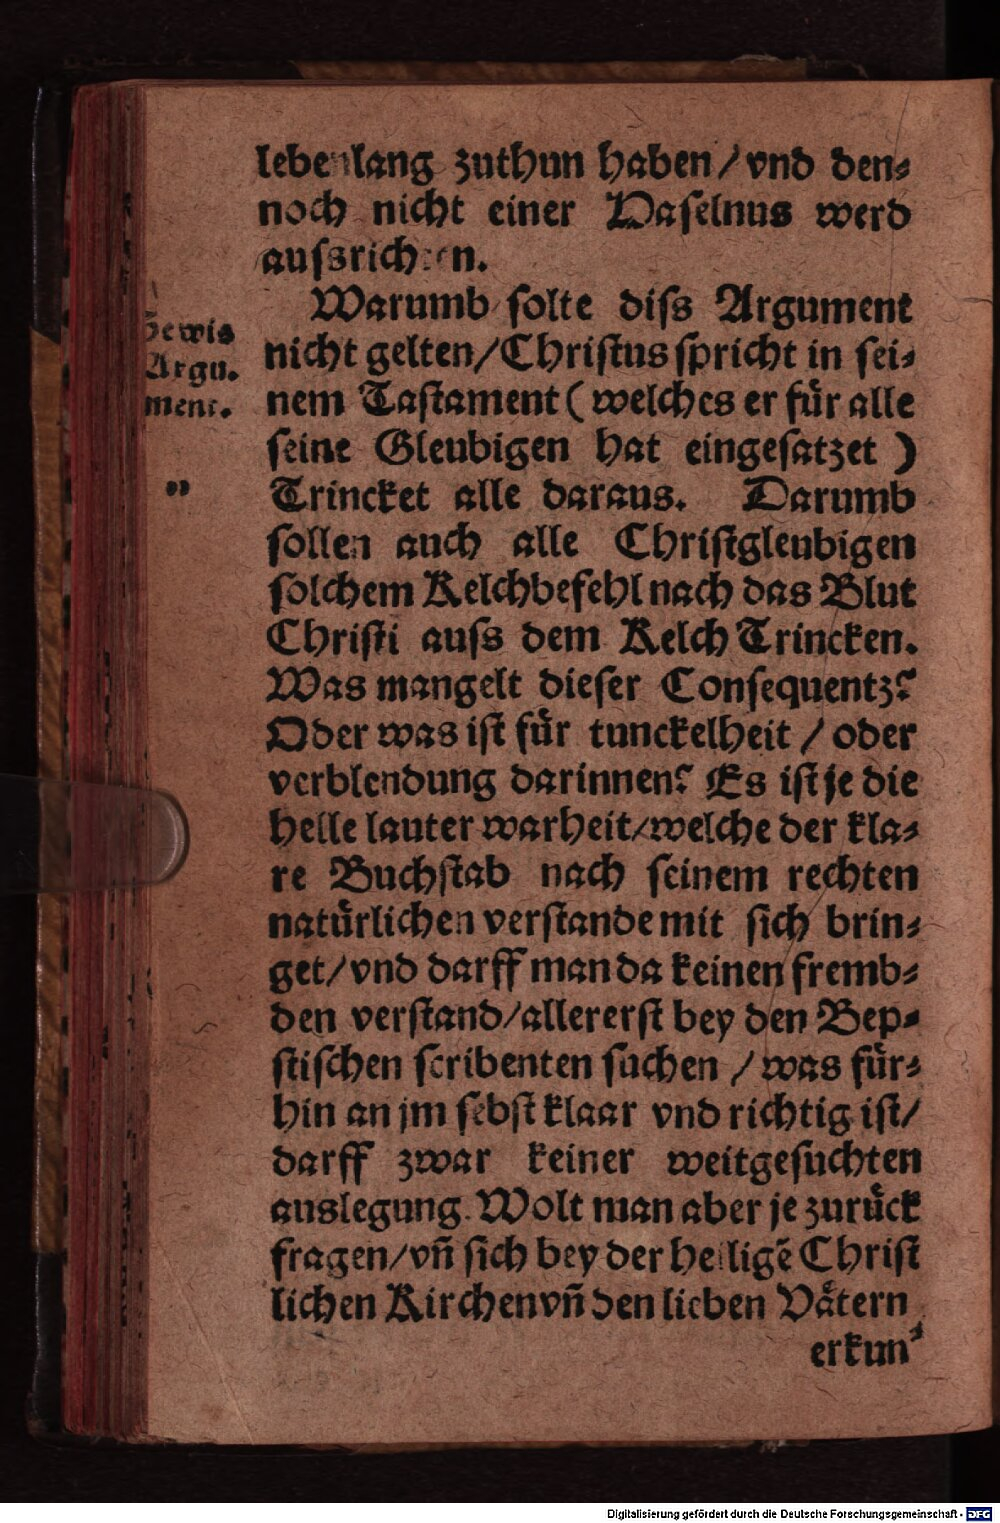 lebenlang zuthun haben / vnd den⸗
noch nicht einer Haſelnus werd
auſsrichten.
Warumb ſolte diſs Argument
nicht gelten / Chriſtus ſpricht in ſei⸗
nem Taſtament ( welches er fuͤr alle
ſeine Gleubigen hat eingeſatzet )
Trincket alle daraus. Darumb
ſollen auch alle Chriſtgleubigen
ſolchem Kelchbefehl nach das Blut
Chriſti auſs dem Kelch Trincken.
Was mangelt dieſer Conſequentz?
Oder was iſt fuͤr tunckelheit / oder
verblendung darinnen? Es iſt je die
helle lauter warheit / welche der kla⸗
re Buchſtab nach ſeinem rechten
natuͤrlichen verſtande mit ſich brin⸗
get / vnd darff man da keinen fremb⸗
den verſtand / allererſt bey den Bep⸗
ſtiſchen ſcribenten ſuchen / was fuͤr⸗
hin an jm ſebſt klaar vnd richtig iſt /
darff zwar keiner weitgeſuchten
auslegung. Wolt man aber je zuruͤck
fragen / vñ ſich bey der heiligẽ Chriſt
lichen Kirchen vñ den lieben Vaͤtern
erkun⸗
Gewis
Argu⸗
ment.
"
Digitalisierung gefördert durch die Deutsche Forschungsgemeinschaft - DFG